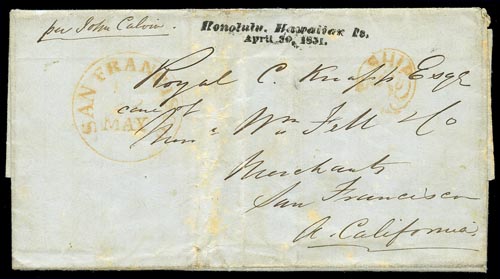 per John Calvin
Honolulu, Hawaiian Is.
April 30, 1851.
SAN FRAN
MAY
SHIP
Royal C. Knapp Esqr
care of
Wm Fell & Co
Merchants
San Francisco
A. California.